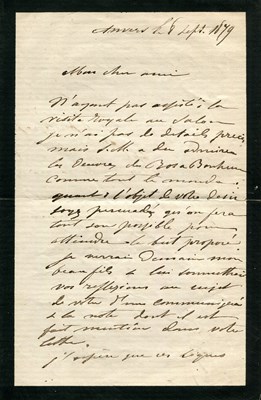 Anvers le 8 Sept. 1879
Mon cher ami
N'ayant pas assisté à la
visite Royale au Salon
je n'ai pas de détails précis
mais S. M. a dû admirer
les Oeuvres de Rosa Bonheur
comme tout le monde.
quant à l'objet de votre désir
soyez persuadé qu'on fera
tout son possible pour
atteindre le but proposé.
je verrai demain mon
beau fils & lui soumettrai
vos reflexions au sujet
de votre communiqué
& la note dont il est
fait mention dans votre
lettre.
j'espère que ces lignes